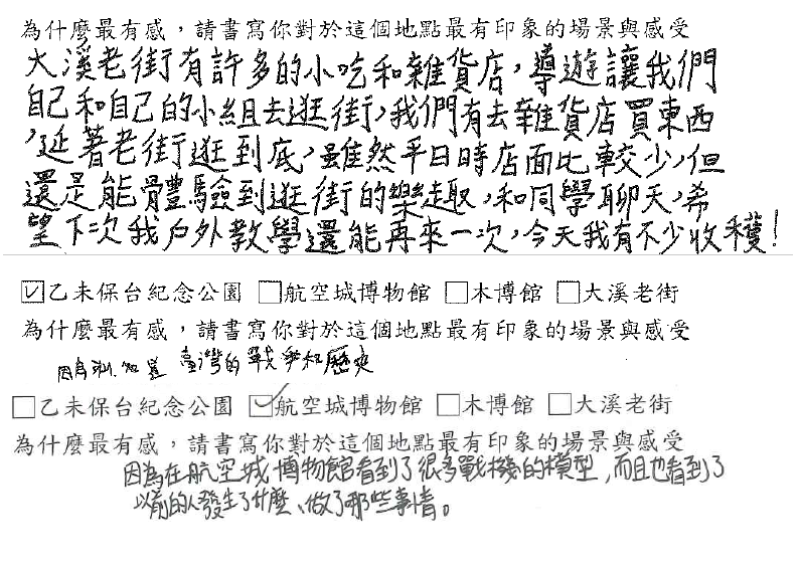 為什麼最有感，請書寫你對於這個地點最有印象的場景與感受
大溪老街有許多的小吃和雜貨店，導遊讓我們
自己和自己的小組去逛街，我們有去雜貨店買東西
，延著老街逛到底，雖然平日時店面比較少，但
還是能體驗到逛街的樂趣，和同學聊天，希
望下次我戶外教學還能再來一次，今天我有不少收穫！
☑乙未保台紀念公園 □航空城博物館 □木博館 □大溪老街
為什麼最有感，請書寫你對於這個地點最有印象的場景與感受
因為 臺灣的戰爭和歷史
□乙未保台紀念公園 ☑航空城博物館 □木博館 □大溪老街
為什麼最有感，請書寫你對於這個地點最有印象的場景與感受
因為在航空城博物館看到了很多戰機的模型，而且也看到了
以前的人發生了什麼、做了那些事情。